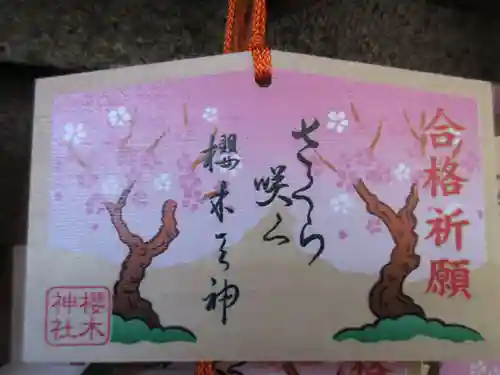 合格祈願
さくら
咲く
櫻木の神
櫻木
神社